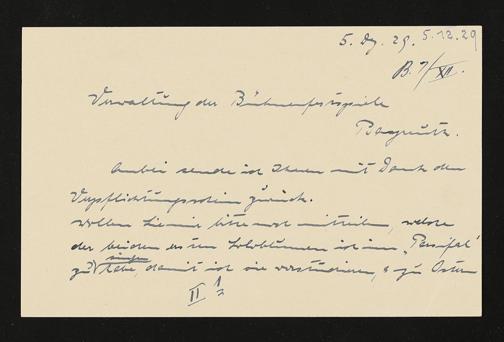 5. Dz. 29. 5.12.29
B. 7/XII.
Verwaltung der Bühnenfestspiele
Bayreuth.
Anbei sende ich Ihnen mit Dank den
Verpflichtungsschein zurück.
Wollen Sie mir bitte noch mitteilen, welche
der beiden ersten Soloblumen ich im „Parsifal"
singen
zu habe, damit ich sie vorstudieren, zu Ostern
II 1/2